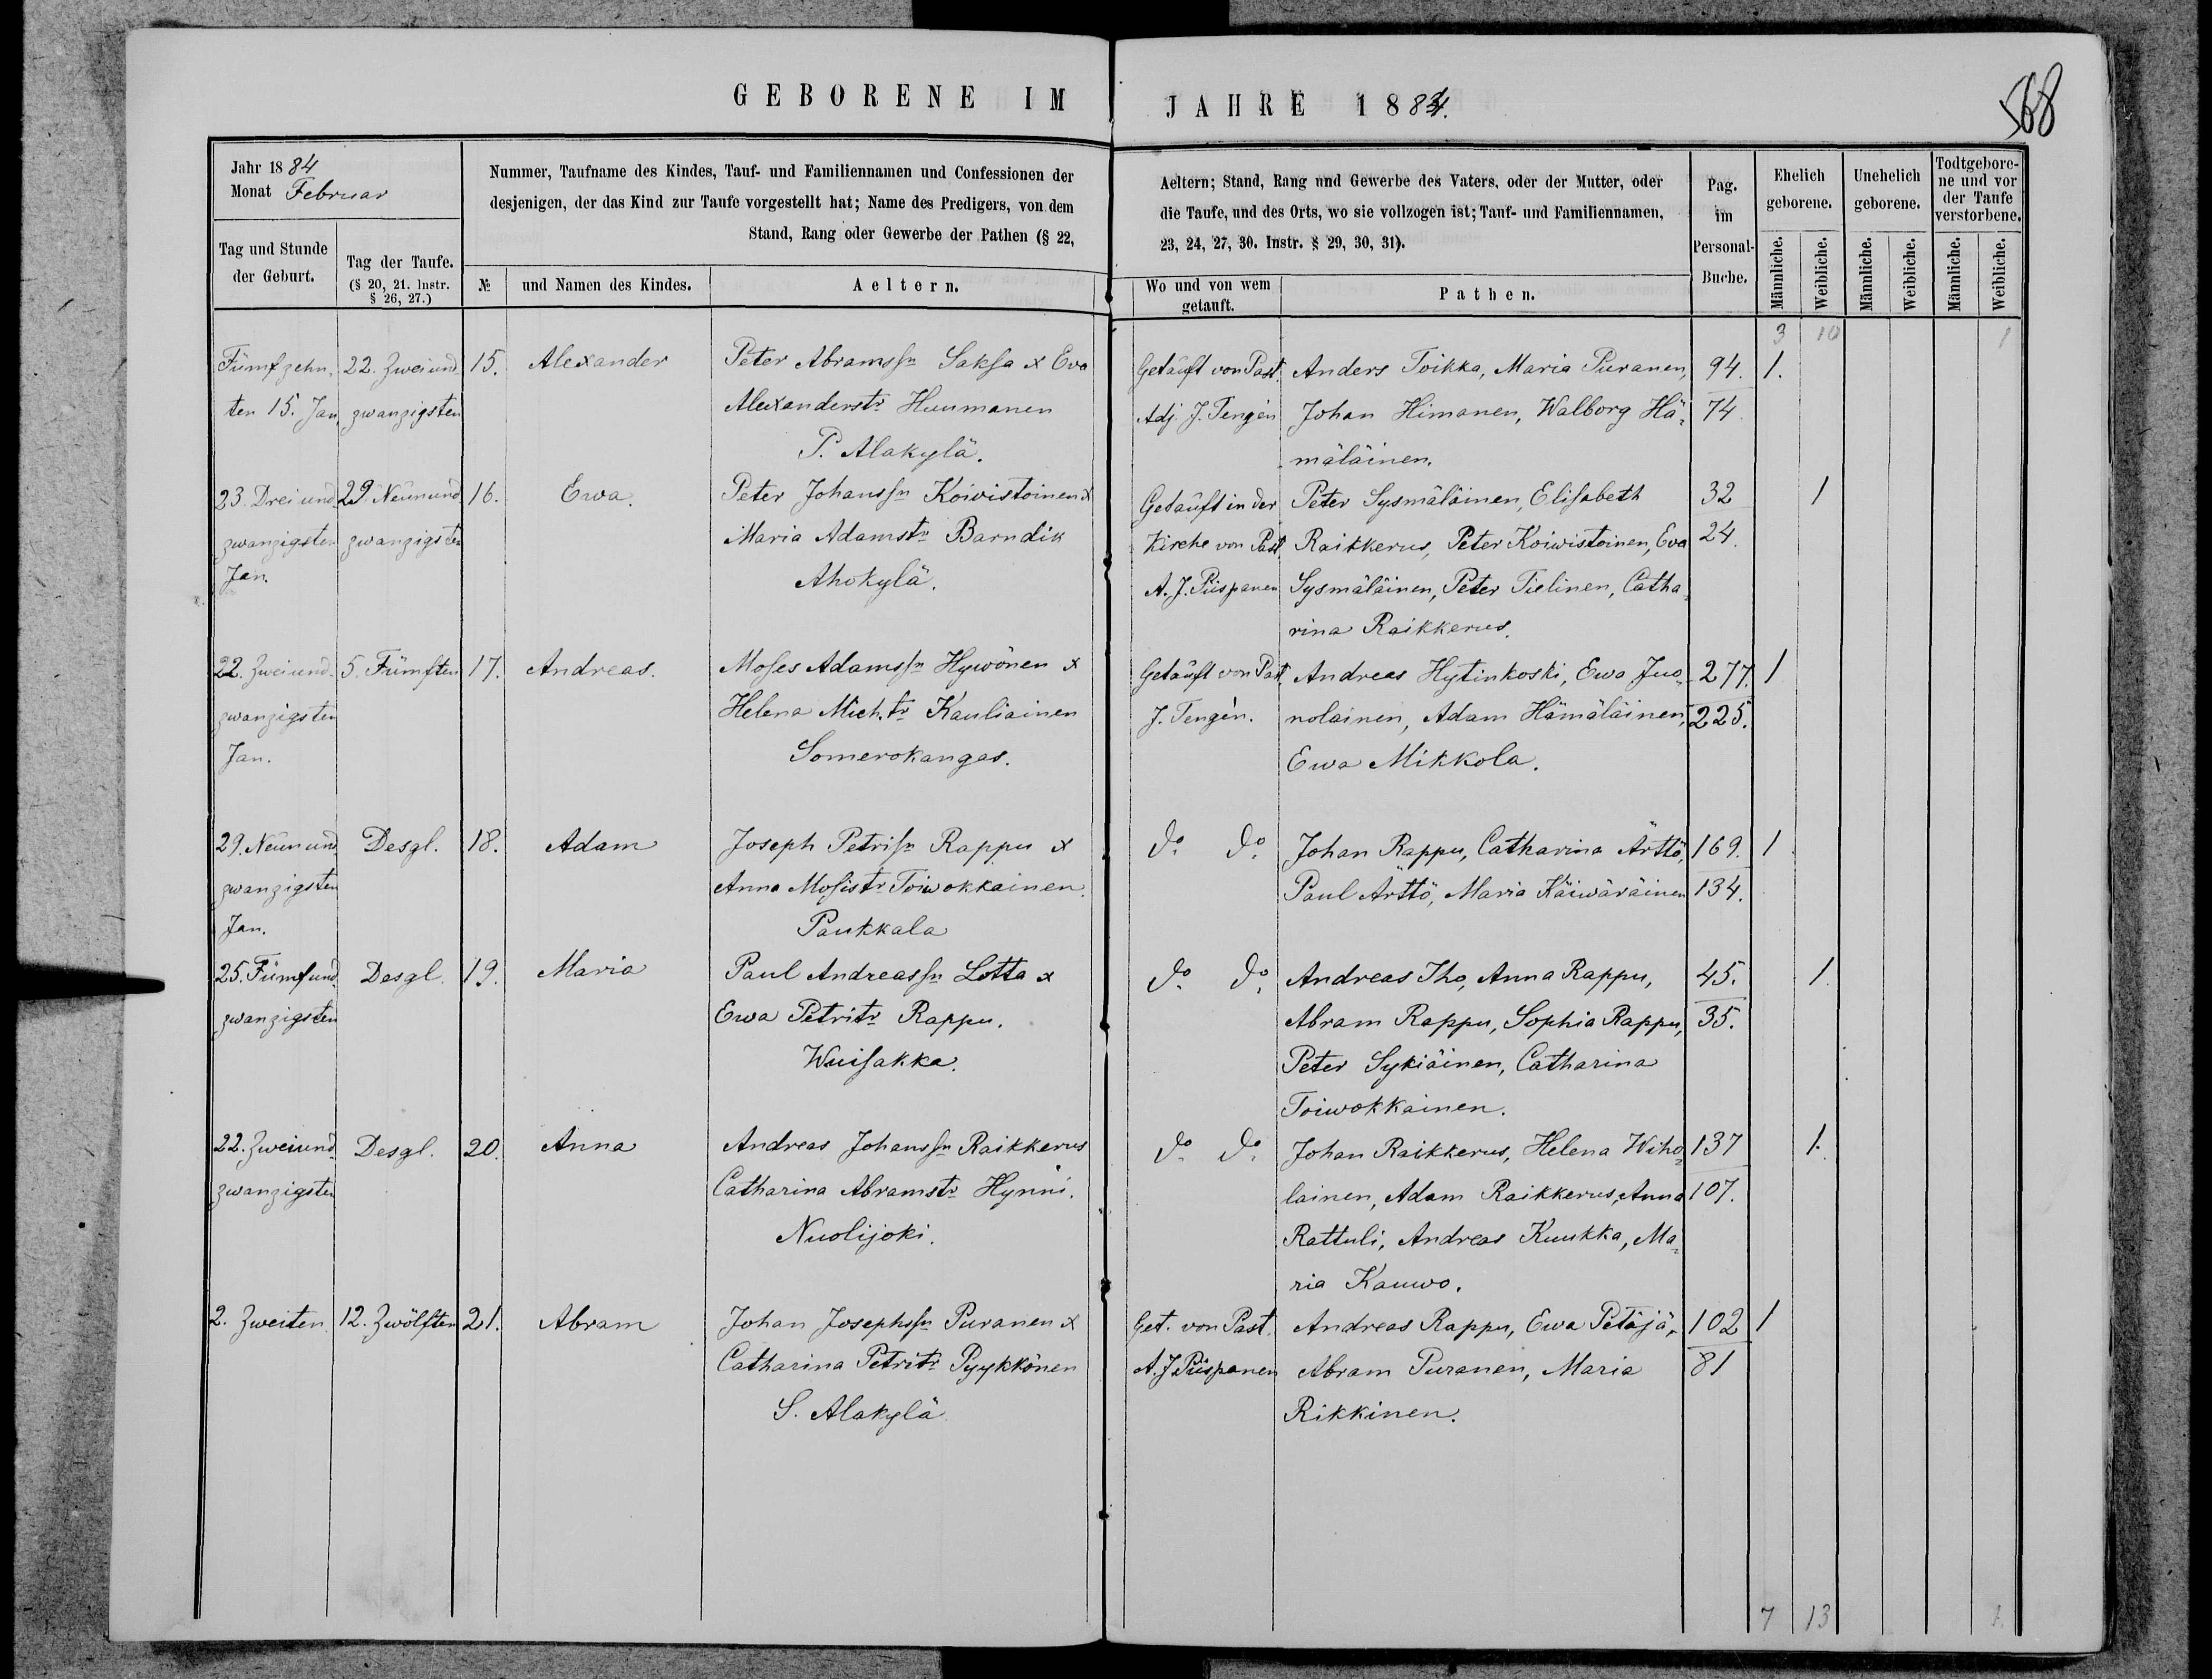 GEBORENE IM JAHRE 1884.
568
Jahr 1884
Monat Februar
Tag und Stunde der Geburt.
Tag der Taufe.
(§ 20, 21. Instr. § 26, 27.)
Nummer, Taufname des Kindes, Tauf- und Familiennamen und Confessionen der
desjenigen, der das Kind zur Taufe vorgestellt hat; Name des Predigers, von dem
Stand, Rang oder Gewerbe der Pathen (§ 22,
№
und Namen des Kindes.
Aeltern.
Aeltern; Stand, Rang und Gewerbe des Vaters, oder der Mutter, oder
die Taufe, und des Orts, wo sie vollzogen ist; Tauf- und Familiennamen,
23, 24, 27, 30. Instr. § 29, 30, 31).
Wo und von wem getauft.
Pathen.
Pag. im Personal-Buche.
Ehelich geborene.
Unehelich geborene.
Todtgeborene und vor der Taufe verstorbene.
Männliche. Weibliche. Männliche. Weibliche. Männliche. Weibliche.
3 10 1
Fümfzehn- 22. Zweiund 15. Alexander Peter Abramssn Saksa x Eva Getäuft von Past. Anders Toikka, Maria Puranen, 94. 1.
ten 15. Jan. zwanzigsten Alexanderstr Huumanen Adj. J. Tengén Johan Himanen, Walborg Hä- 74
P. Alakylä. mäläinen.
23. Drei und 29. Neunund 16. Ewa. Peter Johanssn Koivistoinen x Getäuft in der Peter Sysmäläinen, Elisabeth 32 1
zwanzigsten zwanzigsten Maria Adamstr Barndik Kirche von Past. Raikkerus, Peter Koiwistoinen, Eva 24.
Jan. Ahokylä. A. J. Piispanen Sysmäläinen, Peter Tielinen, Catha-
rina Raikkerus.
22. Zweiund- 5. Fümften 17. Andreas. Moses Adamssn Hywönen x Getäuft von Past. Andreas Hytinkoski, Ewa Juo- 277. 1
zwanzigsten Helena Mich.tr Kauliainen J. Tengén. nolainen, Adam Hämäläinen, 225.
Jan. Somerokangas. Ewa Mikkola.
29. Neunund- Desgl. 18. Adam Joseph Petrisn Rappu x do do Johan Rappu, Catharina Ärttö, 169. 1
zwanzigsten Anna Mosistr Toiwokkainen. Paul Ärttö, Maria Käiwäräinen 134.
Jan. Paukkala
25. Fümfund- Desgl. 19. Maria Paul Andreassn Lotta x do do Andreas Iho, Anna Rappu, 45. 1
zwanzigsten Ewa Petritr Rappu. Abram Rappu, Sophia Rappu, 35.
Wuisakka. Peter Sykiäinen, Catharina
Toiwokkainen.
22. Zweiund- Desgl. 20. Anna Andreas Johanssn Raikkerus do do Johan Raikkerus, Helena Wiho- 137 1.
zwanzigsten Catharina Abramstr Hynni. lainen, Adam Raikkerus, Anna 107.
Nuolijoki. Rattuli, Andreas Kuukka, Ma-
ria Kauwo.
2. Zweiten 12. Zwölften 21. Abram Johan Josephssn Puranen x Get. von Past. Andreas Rappu, Ewa Petäjä, 102 1
Catharina Petritr Pyykkönen A. J. Piispanen Abram Puranen, Maria 81
S. Alakylä Rikkinen.
7 13 1.